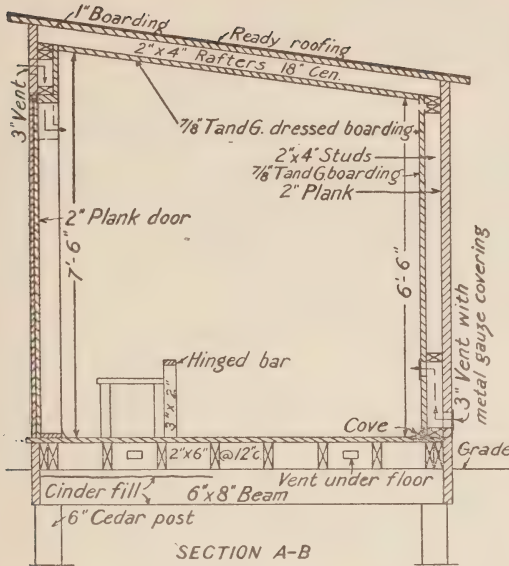 1" Boarding
Ready roofing
2" x 4" Rafters 18" Cen.
3" Vent
7/8" T and G. dressed boarding
2" x 4" Studs
7/8" T and G boarding
2" Plank
2" Plank door
7'-6"
6'-6"
3" Vent with
metal gauze covering
Hinged bar
3" x 2"
Cove
Grade
2" x 6" @ 12" c
Cinder fill
6" x 8" Beam
Vent under floor
6" Cedar post
SECTION A-B